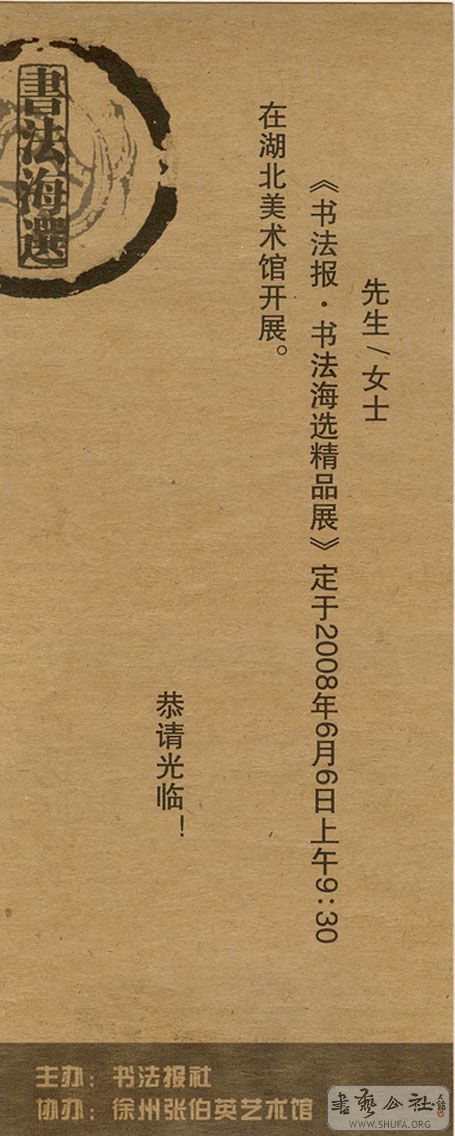 先生/女士
《书法报·书法海选精品展》定于2008年6月6日上午9:30
在湖北美术馆开展。
恭请光临！
書法海選
主办：书法报社
协办：徐州张伯英艺术馆
書藝公社
WWW.SHUFA.ORG